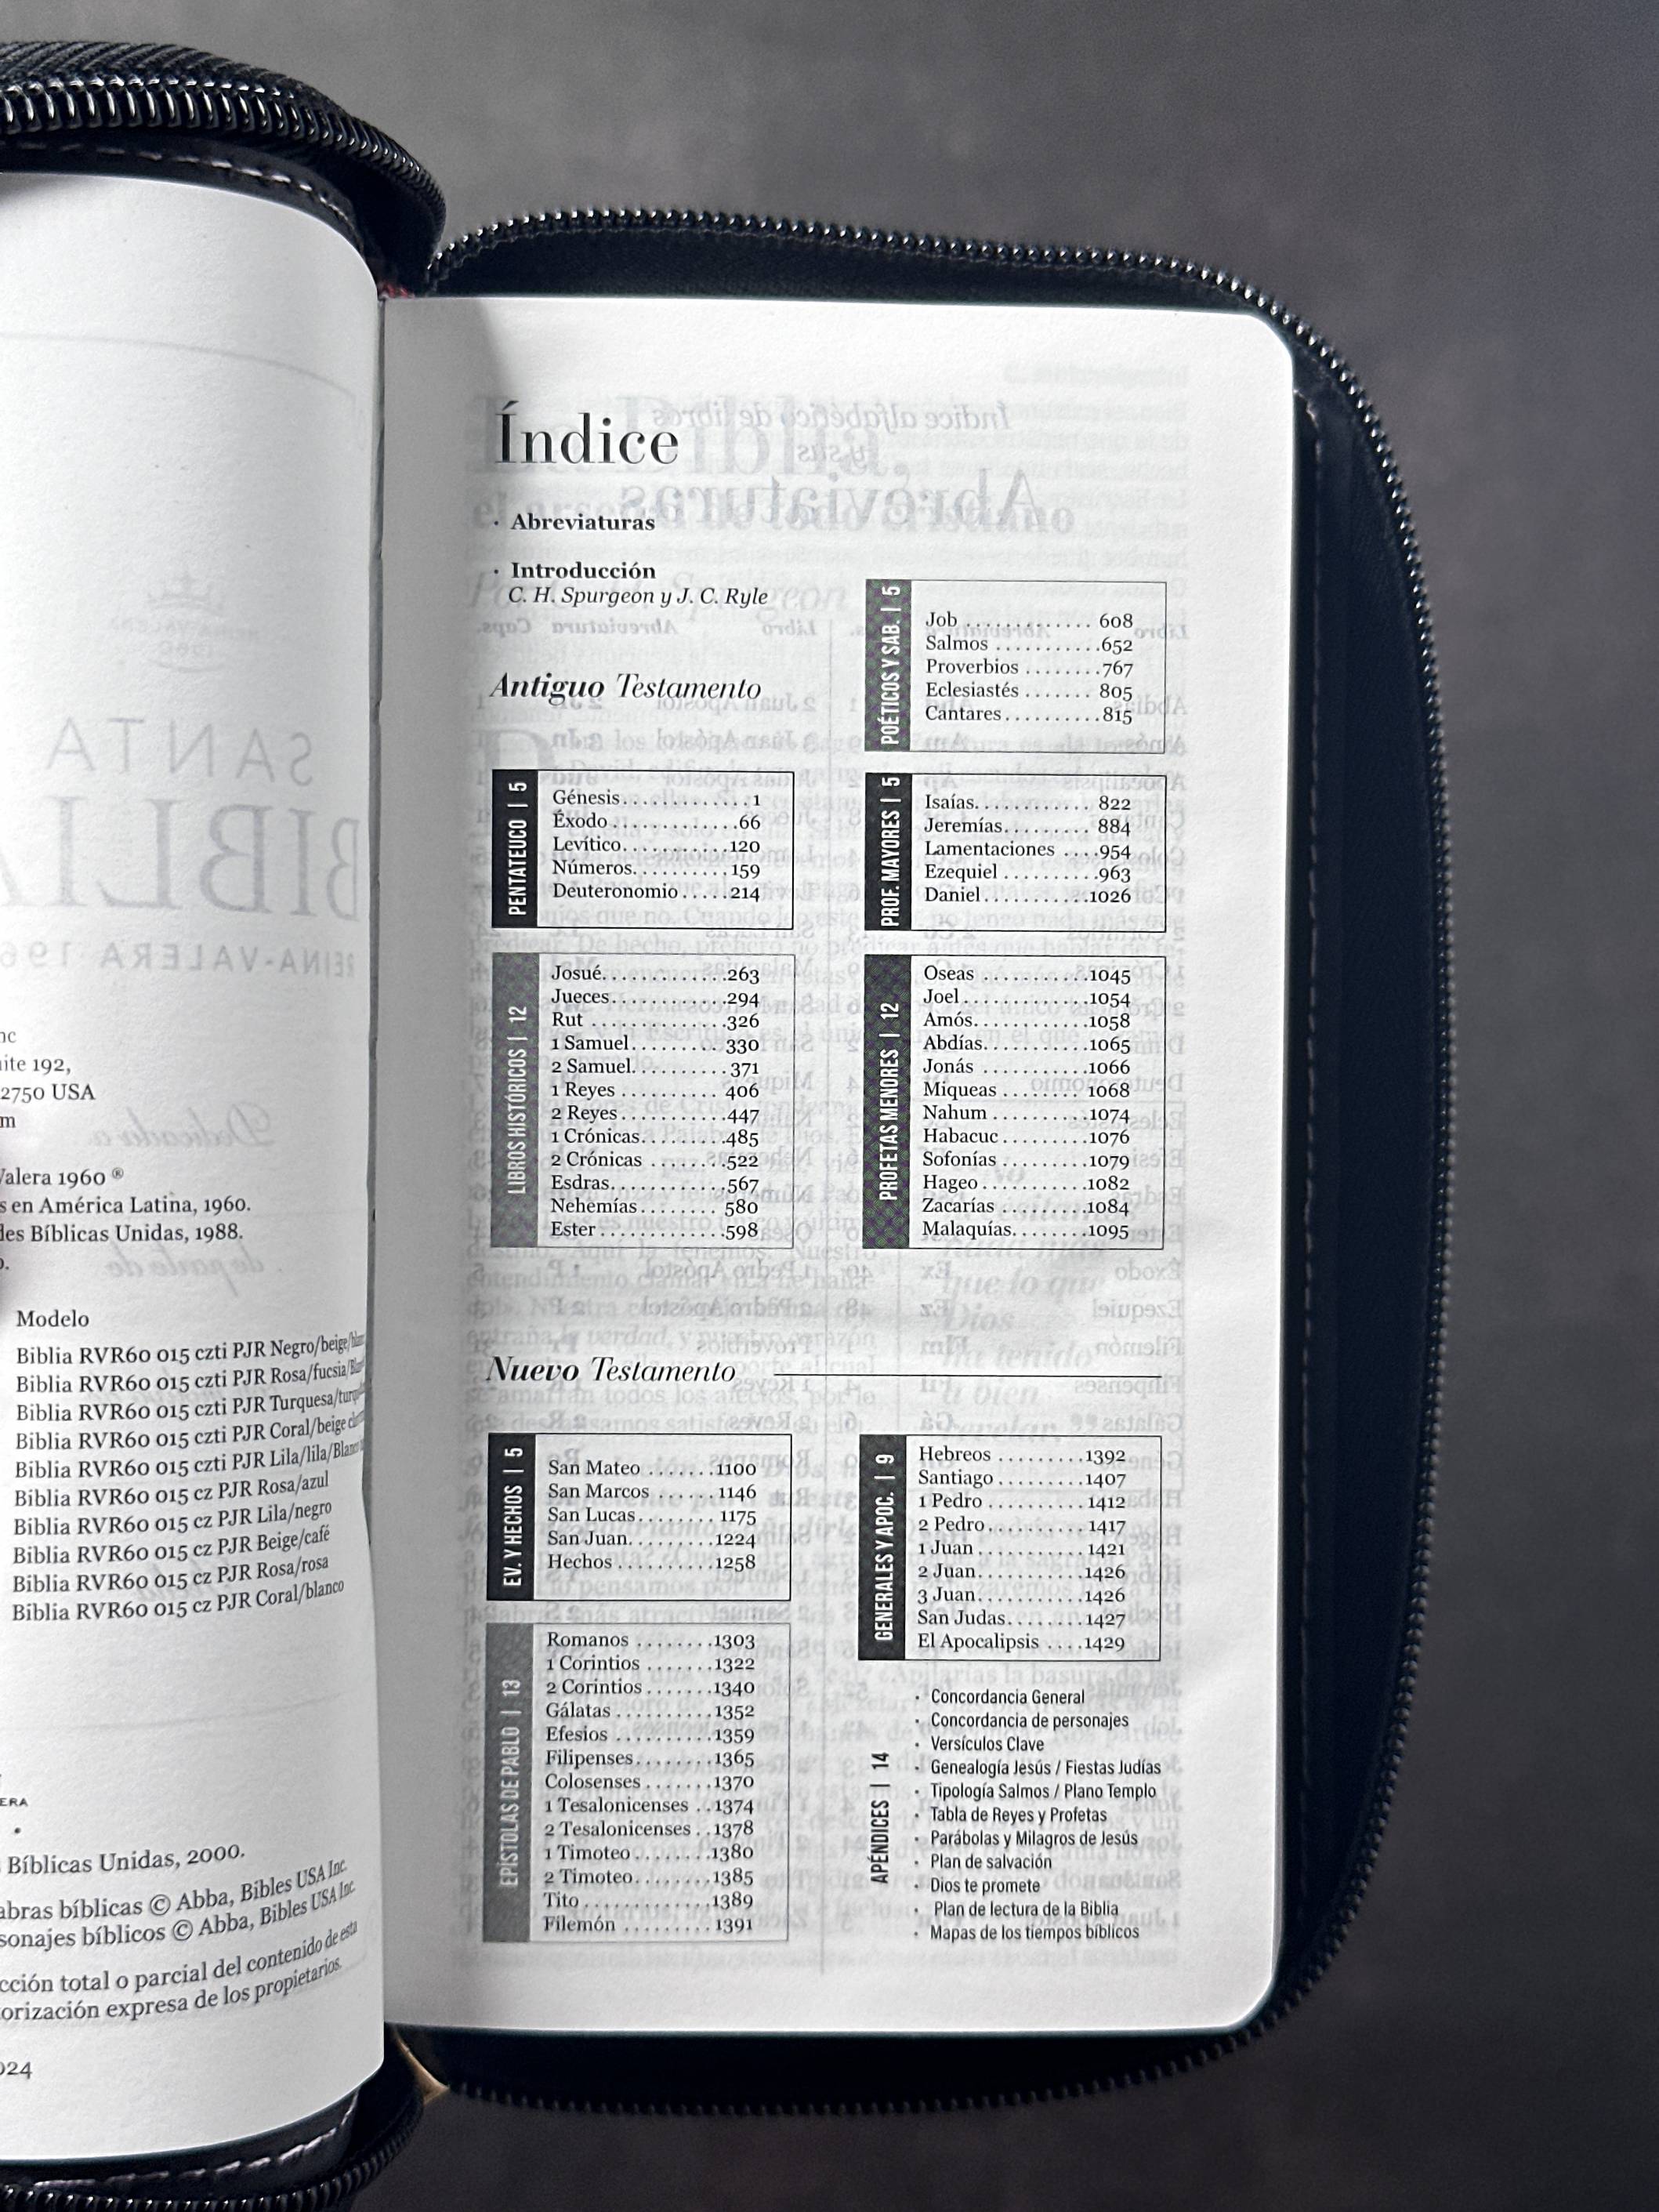 nc
ite 192,
2750 USA
m
Valera 1960 ®
s en América Latina, 1960.
des Bíblicas Unidas, 1988.
Modelo
Biblia RVR60 015 czti PJR Negro/beige/
Biblia RVR60 015 czti PJR Rosa/fucsia/
Biblia RVR60 015 czti PJR Turquesa/
Biblia RVR60 015 czti PJR Coral/beige
Biblia RVR60 015 czti PJR Lila/lila/
Biblia RVR60 015 cz PJR Rosa/azul
Biblia RVR60 015 cz PJR Lila/negro
Biblia RVR60 015 cz PJR Beige/café
Biblia RVR60 015 cz PJR Rosa/rosa
Biblia RVR60 015 cz PJR Coral/blanco
ERA
Bíblicas Unidas, 2000.
abras bíblicas © Abba, Bibles USA Inc.
sonajes bíblicos © Abba, Bibles USA Inc.
cción total o parcial del contenido de esta
orización expresa de los propietarios.
024
Índice
· Abreviaturas
· Introducción
C. H. Spurgeon y J. C. Ryle
Antiguo Testamento
PENTATEUCO | 5
Génesis............. 1
Éxodo ............66
Levítico..........120
Números..........159
Deuteronomio .....214
LIBROS HISTÓRICOS | 12
Josué............263
Jueces...........294
Rut .............326
1 Samuel......... 330
2 Samuel.........371
1 Reyes .......... 406
2 Reyes ..........447
1 Crónicas........485
2 Crónicas .......522
Esdras...........567
Nehemías........ 580
Ester ............598
POÉTICOS Y SAB. | 5
Job ............ 608
Salmos ..........652
Proverbios ........767
Eclesiastés ....... 805
Cantares..........815
PROF. MAYORES | 5
Isaías........... 822
Jeremías......... 884
Lamentaciones ....954
Ezequiel .........963
Daniel..........1026
PROFETAS MENORES | 12
Oseas ..........1045
Joel ............1054
Amós...........1058
Abdías..........1065
Jonás ..........1066
Miqueas ....... 1068
Nahum .........1074
Habacuc ........1076
Sofonías ........1079
Hageo ..........1082
Zacarías ........1084
Malaquías.......1095
Nuevo Testamento
EV. Y HECHOS | 5
San Mateo .......1100
San Marcos ......1146
San Lucas........1175
San Juan.........1224
Hechos ..........1258
EPÍSTOLAS DE PABLO | 13
Romanos ........1303
1 Corintios .......1322
2 Corintios .......1340
Gálatas .........1352
Efesios ..........1359
Filipenses........1365
Colosenses .......1370
1 Tesalonicenses ..1374
2 Tesalonicenses ..1378
1 Timoteo ........1380
2 Timoteo........1385
Tito ............1389
Filemón .........1391
GENERALES Y APOC. | 9
Hebreos .........1392
Santiago .........1407
1 Pedro ..........1412
2 Pedro..........1417
1 Juan ...........1421
2 Juan...........1426
3 Juan...........1426
San Judas........1427
El Apocalipsis ....1429
APÉNDICES | 14
· Concordancia General
· Concordancia de personajes
· Versículos Clave
· Genealogía Jesús / Fiestas Judías
· Tipología Salmos / Plano Templo
· Tabla de Reyes y Profetas
· Parábolas y Milagros de Jesús
· Plan de salvación
· Dios te promete
· Plan de lectura de la Biblia
· Mapas de los tiempos bíblicos